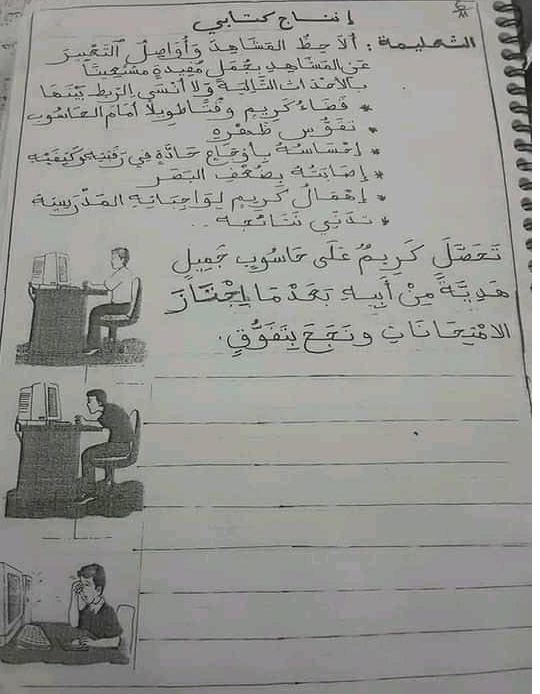 إنتاج كتابي
التعليمة: ألاحظ المشاهد وَأُوَاصِلُ التَّعْبِيرَ
عَنِ المَشَاهِدِ بِجُمَلٍ مُفِيدَةٍ مُسْتَعِينًا
بِالأَحْدَاثِ التَّالِيَةِ وَلَا أَنْسَى الرَّبْطَ بَيْنَهَا
* قَضَاءُ كَرِيمٍ وَقْتًا طَوِيلًا أَمَامَ الحَاسُوبِ
* تَقَوُّسُ ظَهْرِهِ
* إِحْسَاسُهُ بِأَوْجَاعٍ حَادَّةٍ فِي رَقَبَتِهِ وَكَتِفَيْهِ
* إِصَابَتُهُ بِضُعْفِ البَصَرِ
* إِهْمَالُ كَرِيمٍ لِوَاجِبَاتِهِ المَدْرَسِيَّةِ
* تَدَنِّي نَتَائِجِهِ ..
تَحَصَّلَ كَرِيمٌ عَلَى حَاسُوبٍ جَمِيلٍ
هَدِيَّةً مِنْ أَبِيهِ بَعْدَمَا اِجْتَازَ
الامْتِحَانَاتِ وَنَجَحَ بِتَفَوُّقٍ.